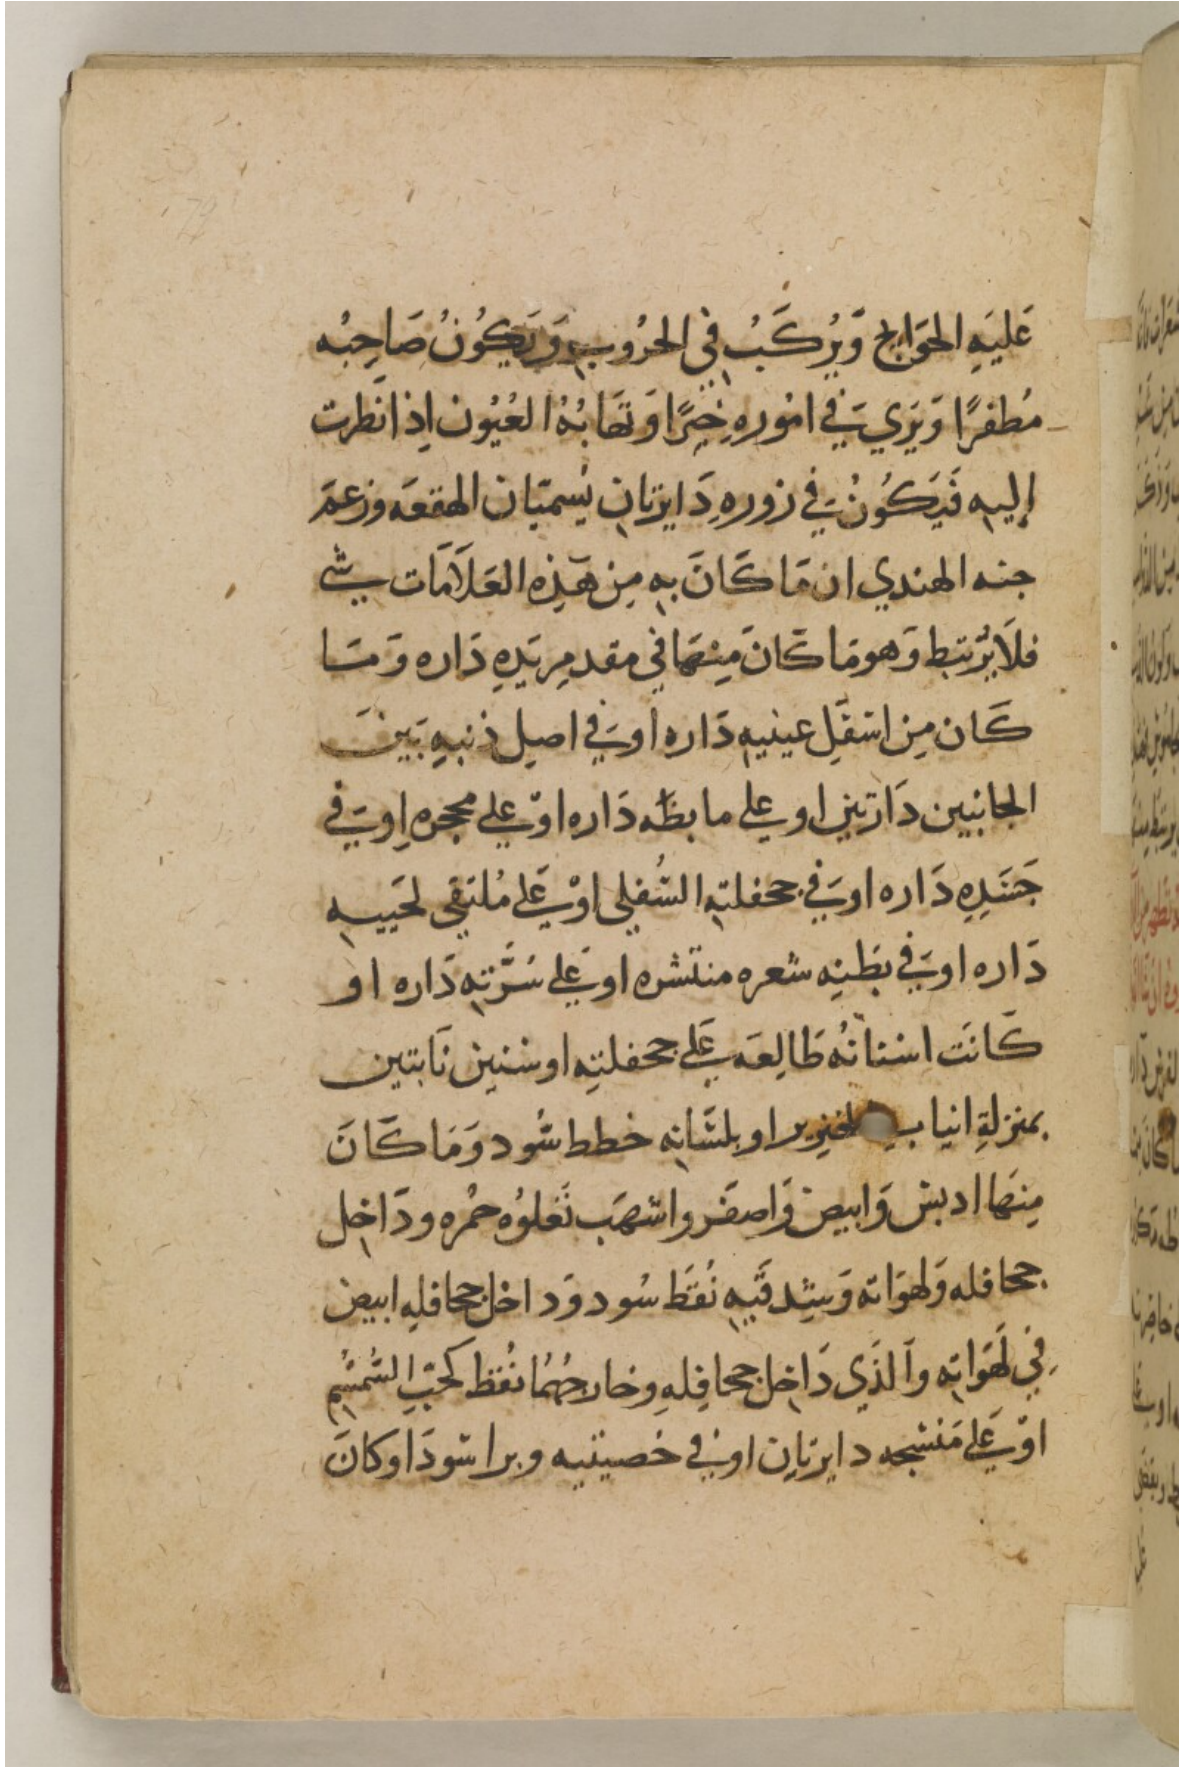 عَليَهِ الحوَايج وَيُركَبُ في الحرُوبِ وَيَكُونُ صَاحِبُه
مُظفرًا وَيَرَي في امُورهِ خيرًا وَتهَابُهُ العُيُون اِذا نَظرت
إليهِ فَيَكُونُ في زورهِ دَايرتان يُسميّان الهقعَه وزعمَ
جنه الهندي ان مَا كَانَ بهِ مِن هَذِه العَلاَمَات شي
فلاَ يُرتبط وَهو مَا كَانَ مِنهَا في مقدمِ يَدِهِ دَاره وَمَا
كَان مِن اسَفَل عينيهِ دَاره اوَ في اصِل ذنبهِ بَين
الجانبين دَارتين او علي ما بظه دَاره اوْ علي محجره اوَ في
خَدِهِ دَاره اوَ في جحفلتهِ السُفلي اوْ عَلي مُلتقي لحَييهِ
دَاره اوَ في بطنِه شعره منتشره اوَ عَلي سُرَّتهِ دَاره او
كَانَت اسنانُه طَالِعَه عَلي جحفلتِه او سنين نَابتين
بمنزلةِ انيابِ الخنزير او بلسَانهِ خطط سُود وَمَا كَانَ
مِنهَا ادبس وَابيض وَاصفَر واشهَب تَعلوُه حُمره ودَاخِل
جحافله وَلهوَاته وَشِدقَيهِ نُقَط سُود وَدَاخل جحافلهِ ابيض
في لَهوَاتهِ وَالذَي دَاخِل جحافِلهِ وخارجهُمَا نُقَط كحَبِّ السُمسُم
اوْ عَلي مَنسجه دايرتان اوَ في خصيتيه وبر اسودَ او كانَ